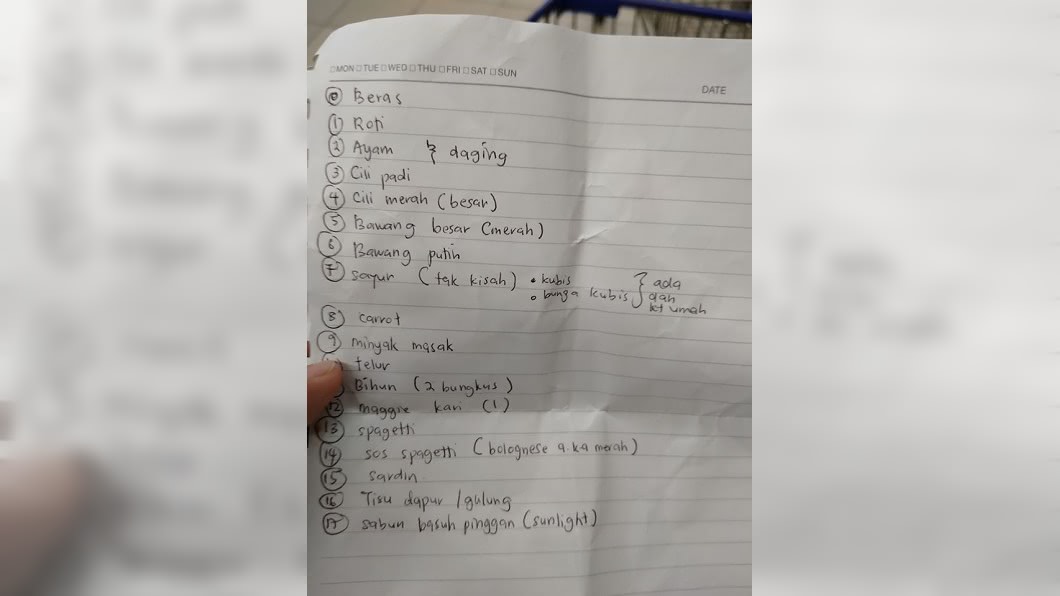 □MON □TUE □WED □THU □FRI □SAT □SUN
DATE
0 Beras
1 Roti
2 Ayam } daging
3 Cili padi
4 Cili merah (besar)
5 Bawang besar (merah)
6 Bawang putih
7 sayur (tak kisah) • kubis
• bunga kubis } ada dah kt umah
8 carrot
9 minyak masak
telur
Bihun (2 bungkus)
12 maggie kari (1)
13 spagetti
14 sos spagetti (bolognese a.k.a merah)
15 sardin
16 Tisu dapur / gulung
17 sabun basuh pinggan (sunlight)